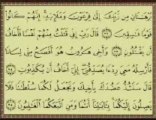 بُرْهَٰنَانِ مِن رَّبِّكَ إِلَىٰ فِرْعَوْنَ وَمَلَإِيْهِۦٓ إِنَّهُمْ كَانُوا۟
قَوْمًا فَٰسِقِينَ ۝ قَالَ رَبِّ إِنِّى قَتَلْتُ مِنْهُمْ نَفْسًا فَأَخَافُ
أَن يَقْتُلُونِ ۝ وَأَخِى هَٰرُونُ هُوَ أَفْصَحُ مِنِّى لِسَانًا
فَأَرْسِلْهُ مَعِىَ رِدْءًا يُصَدِّقُنِىٓ إِنِّىٓ أَخَافُ أَن يُكَذِّبُونِ ۝
قَالَ سَنَشُدُّ عَضُدَكَ بِأَخِيكَ وَنَجْعَلُ لَكُمَا سُلْطَٰنًا فَلَا
يَصِلُونَ إِلَيْكُمَا بِـَٔايَٰتِنَآ أَنتُمَا وَمَنِ ٱتَّبَعَكُمَا ٱلْغَٰلِبُونَ ۝